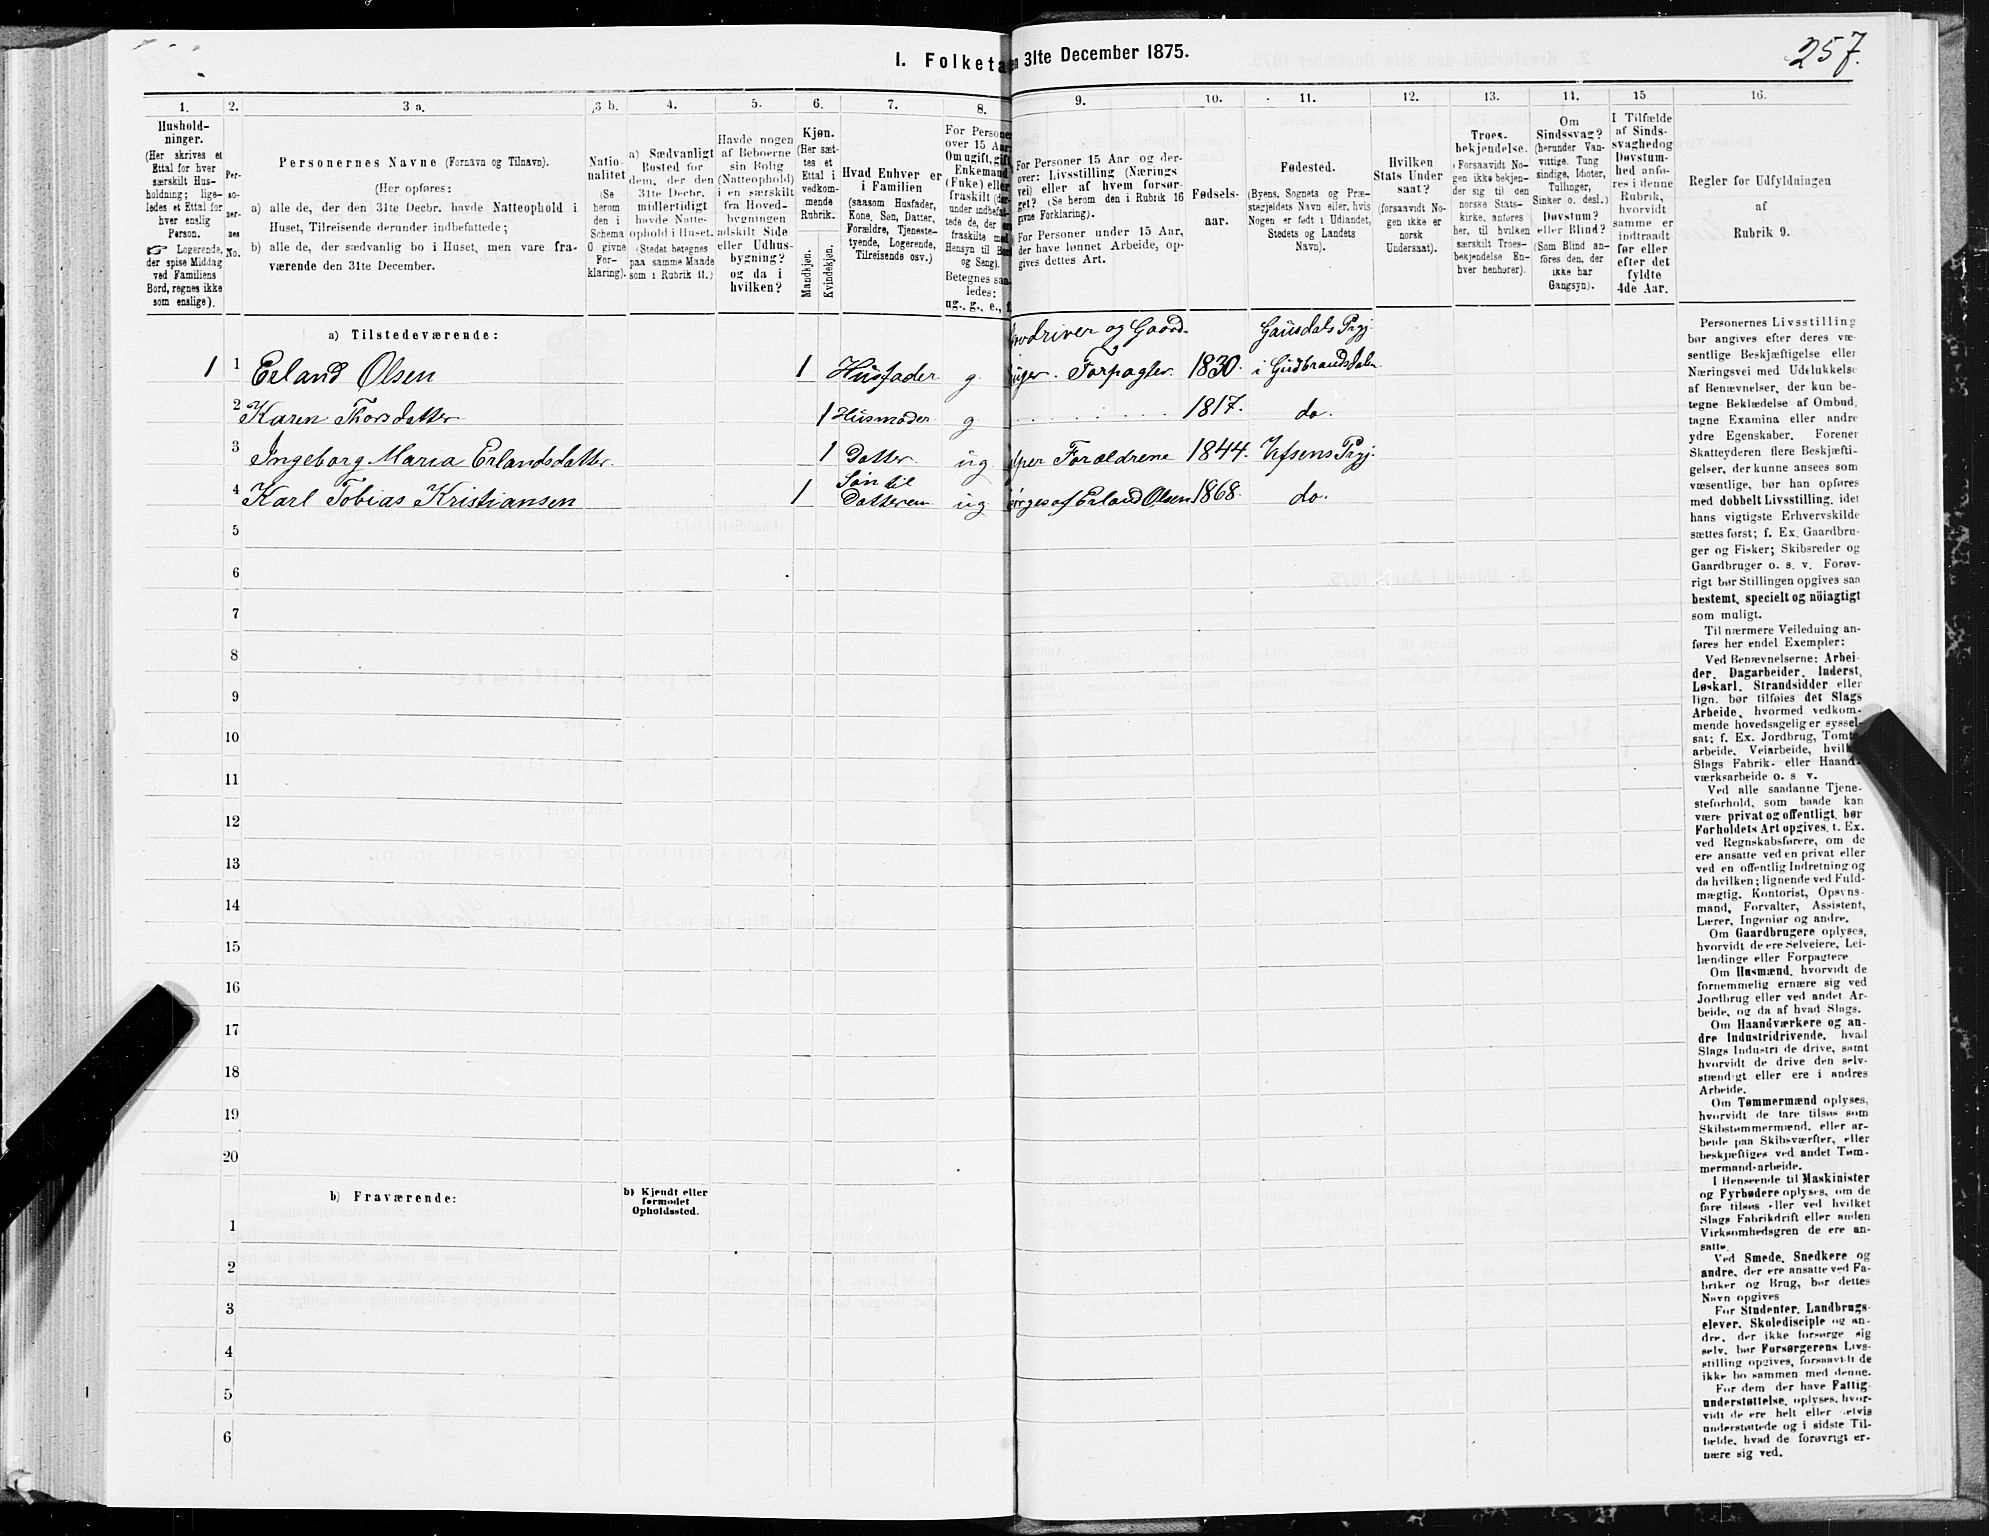 257.
I. Folketa
en 31te December 1875.
1. 2. 3 a. 3 b. 4. 5. 6. 7. 8. 9. 10. 11. 12. 13. 14. 15 16.
Hushold-
ninger.
(Her skrives et
Ettal for hver
særskilt Hus-
holdning; lige-
ledes et Ettal for
hver enslig
Person.
☞ Logerende,
der spise Middag
ved Familiens
Bord, regnes ikke
som enslige).
Per-
so-
ner-
nes
No.
Personernes Navne (Fornavn og Tilnavn).
(Her opføres:
a) alle de, der den 31te Decbr. havde Natteophold i
Huset, Tilreisende derunder indbefattede;
b) alle de, der sædvanlig bo i Huset, men vare fra-
værende den 31te December.
Natio-
nalitet
(Se
herom
den i
Schema
O givne
For-
klaring).
a) Sædvanligt
Bosted for
dem, der den
31te Decbr.
midlertidigt
havde Natte-
ophold i Huset.
(Stedet betegnes
paa samme Maade
som i Rubrik 11.)
Havde nogen
af Beboerne
sin Bolig
(Natteophold)
i en særskilt
fra Hoved-
bygningen
adskilt Side
eller Udhus-
bygning?
og da i
hvilken?
Kjøn.
(Her sæt-
tes et
Ettal i
vedkom-
mende
Rubrik.
Mandkjøn.
Kvindekjøn.
Hvad Enhver er
i Familien
(saasom Husfader,
Kone, Søn, Datter,
Forældre, Tjeneste-
tyende, Logerende,
Tilreisende osv.)
For Persone
over 15 Aar
Om ugift, gift
Enkemand
(Enke) eller
fraskilt (der-
under indbefat-
tede de, der er
fraskilte med
Hensyn til Bo
og Seng).
Betegnes saa
ledes:
ug., g., e., f.
For Personer 15 Aar og der-
over: Livsstilling (Nærings
vei) eller af hvem forsør-
get? (Se herom den i Rubrik 16
givne Forklaring).
For Personer under 15 Aar,
der have lønnet Arbeide, op-
gives dettes Art.
Fødsels-
aar.
Fødested.
(Byens, Sognets og Præ-
stegjeldets Navn eller, hvis
Nogen er født i Udlandet,
Stedets og Landets
Navn).
Hvilken
Stats Under
saat?
(forsaavidt No-
gen ikke er
norsk
Undersaat).
Troes-
bekjendelse.
(Forsaavidt No-
gen ikke bekjen-
der sig til den
norske Stats-
kirke, anføres
her, til hvilken
særskilt Troes-
bekjendelse En-
hver henhører).
Om
Sindssvag?
(herunder Van-
vittige, Tung
sindige, Idioter,
Tullinger,
Sinker o. desl.)
Døvstum?
eller Blind?
(Som Blind an-
føres den, der
ikke har
Gangsyn).
I Tilfælde
af Sinds-
svaghedog
Døvstum-
hed anfø-
res i denne
Rubrik,
hvorvidt
samme er
indtraadt
før eller
efter det
fyldte
4de Aar.
Regler for Udfyldningen
af
Rubrik 9.
a) Tilstedeværende:
driver og Gaard- Gausdals Prgj.
1 1 Erland Olsen 1 Husfader g Forpagter 1830. i Gudbrandsdalen
2 Karen Thorsdatter 1 Husmoder g 1817. do.
3 Ingeborg Maria Erlandsdatter. 1 Datter ug lper Forældrene 1844. Vefsens Prgj.
4 Karl Tobias Kristiansen 1 Søn til
Datteren ug ørges af Erland Olsen 1868. do.
5
6
7
8
9
10
11
12
13
14
15
16
17
18
19
20
b) Fraværende:
b) Kjendt eller
formodet
Opholdssted.
1
2
3
4
5
6
Personernes Livsstilling
bør angives efter deres væ-
sentlige Beskjæftigelse eller
Næringsvei med Udelukkelse
af Benævnelser, der kun be-
tegne Beklædelse af Ombud,
tagne Examina eller andre
ydre Egenskaber. Forener
Skatteyderen flere Beskjæfti-
gelser, der kunne ansees som
væsentlige, bør han opføres
med dobbelt Livsstilling, idet
hans vigtigste Erhvervskilde
sættes først; f. Ex. Gaardbru-
ger og Fisker; Skibsreder og
Gaardbruger o. s. v. Forøv-
rigt bør Stillingen opgives saa
bestemt, specielt og nöiagtigt
som muligt.
Til nærmere Veiledning an-
føres her endel Exempler:
Ved Benævnelserne: Arbei-
der, Dagarbeider, Inderst,
Løskarl, Strandsidder eller
lign. bør tilføies det Slags
Arbeide, hvormed vedkom-
mende hovedsagelig er syssel-
sat; f. Ex. Jordbrug, Tomte-
arbeide, Veiarbeide, hvilket
Slags Fabrik- eller Haand-
værksarbeide o. s v.
Ved alle saadanne Tjene-
steforhold, som baade kan
være privat og offentligt, bør
Forholdets Art opgives, t. Ex.
ved Regnskabsførere, om de
ere ansatte ved en privat eller
ved en offentlig Indretning og
da hvilken; lignende ved Fuld-
mægtig, Kontorist, Opsyns-
mand, Forvalter, Assistent,
Lærer, Ingeniør og andre.
Om Gaardbrugere oplyses,
hvorvidt de ere Selveiere, Lei-
lændinge eller Forpagtere
Om Husmænd, hvorvidt de
fornemmelig ernære sig ved
Jordbrug eller ved andet Ar-
beide, og da af hvad Slags.
Om Haandværkere og an-
dre Industridrivende, hvad
Slags Industri de drive, samt
hvorvidt de drive den selv-
stændigt eller ere i andres
Arbeide.
Om Tømmermænd oplyses,
hvorvidt de fare tilsøs som
Skibstømmermænd, eller ar-
beide paa Skibsværfter, eller
beskjæftiges ved andet Tøm-
mermand-arbeide.
I Henseende til Maskinister
og Fyrbødere oplyses, om de
fare tilsøs eller ved hvilket
Slags Fabrikdrift eller anden
Virksomhedsgren de ere an-
satte.
Ved Smede, Snedkere og
andre, der ere ansatte ved Fa-
briker og Brug, bør dettes
Navn opgives
For Studenter, Landbrugs-
elever, Skoledisciple og an-
dre, der ikke forsørge sig
selv, bør Forsørgerens Livs-
stilling opgives, forsaavidt de
ikke bo sammen med denne.
For dem der have Fattig-
understøttelse, oplyses, hvor-
vidt de ere helt eller delvis
understøttede og i sidste Til-
fælde, hvad de forøvrigt er-
nære sig ved.